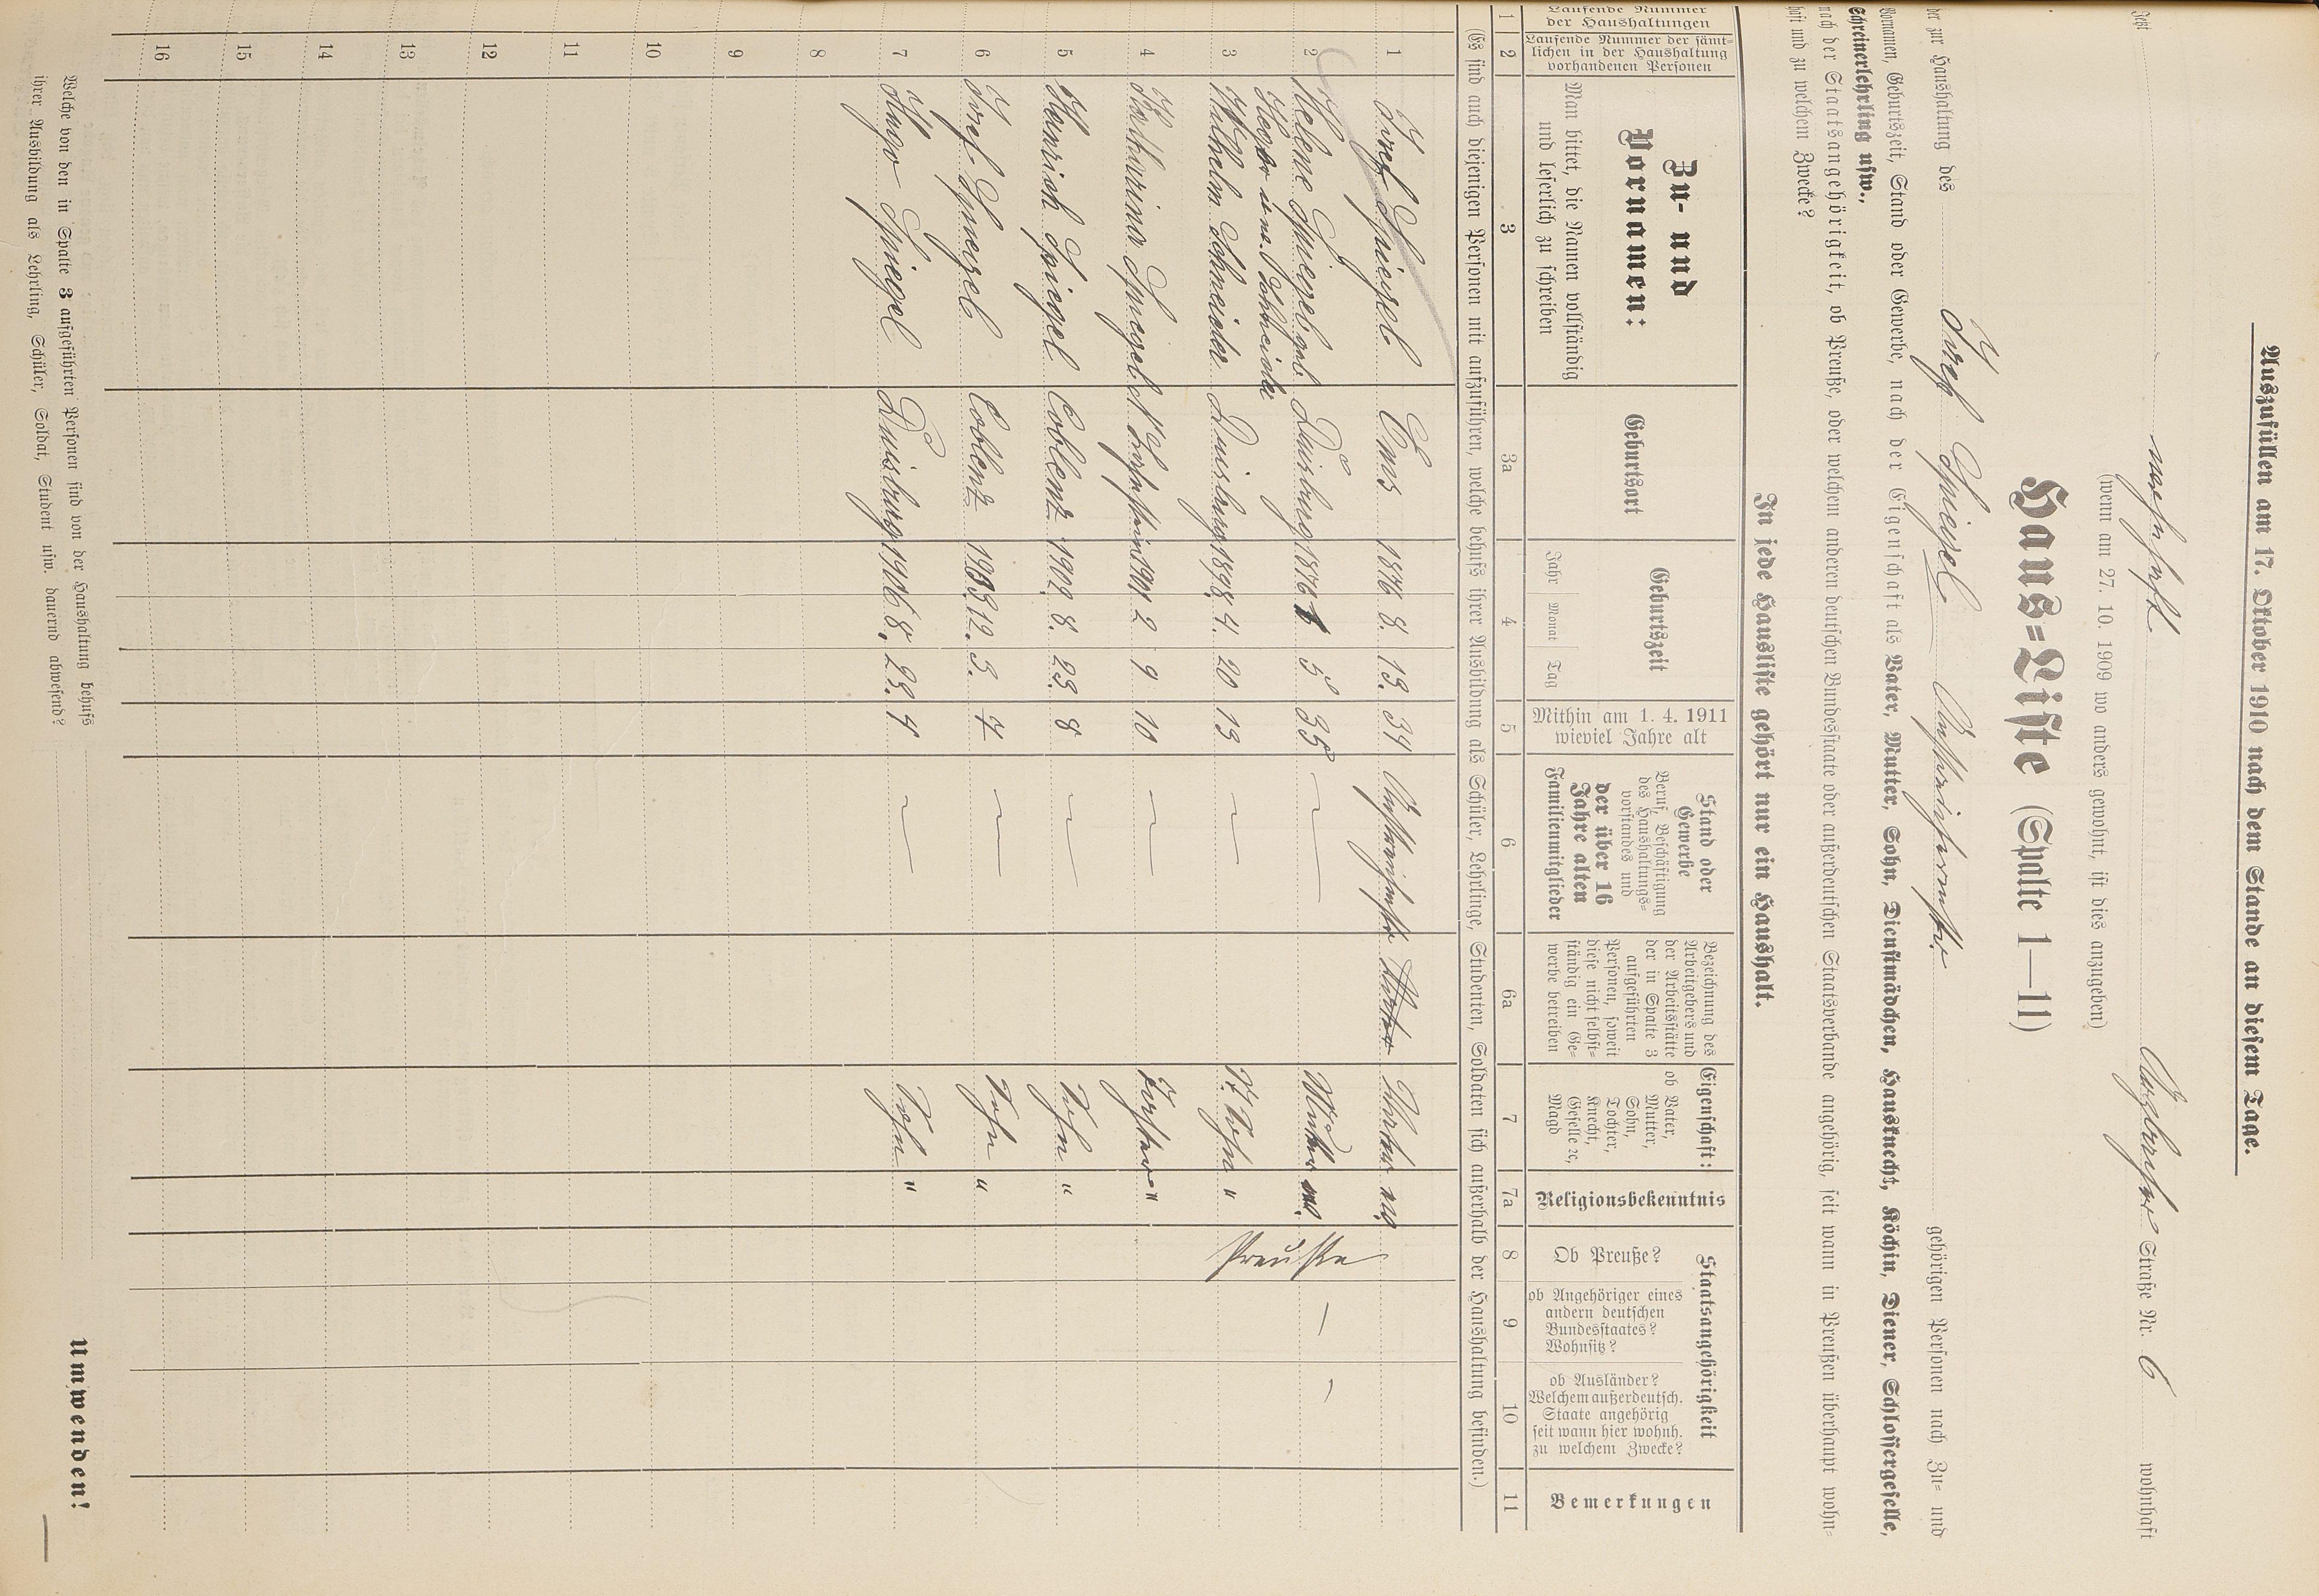 Auszufüllen am 17. Oktober 1910 nach dem Stande an diesem Tage.
Jetzt wohnhaft Straße Nr. 6 wohnhaft
(wenn am 27. 10. 1909 wo anders gewohnt, ist dies anzugeben)
Haus=Liste (Spalte 1—11)
der zur Haushaltung des Josef Spiegel gehörigen Personen nach Zu= und
Vornamen, Geburtszeit, Stand oder Gewerbe, nach der Eigenschaft als Vater, Mutter, Sohn, Dienstmädchen, Hausknecht, Köchin, Diener, Schlossergeselle,
Schreinerlehrling usw.,
nach der Staatsangehörigkeit, ob Preuße, oder welchem anderen deutschen Bundesstaate oder außerdeutschen Staatsverbande angehörig, seit wann in Preußen überhaupt wohn=
haft und zu welchem Zwecke?
In jede Hausliste gehört nur ein Haushalt.
Laufende Nummer der Haushaltungen
Laufende Nummer der sämt=lichen in der Haushaltung vorhandenen Personen
Zu- und Vornamen:
Man bittet, die Namen vollständig und leserlich zu schreiben
Geburtsort
Geburtszeit
Jahr Monat Tag
Mithin am 1. 4. 1911 wieviel Jahre alt
Stand oder Gewerbe
Beruf, Beschäftigung des Haushaltungs=vorstandes und der über 16 Jahre alten Familienmitglieder
Bezeichnung des Arbeitgebers und der Arbeitsstätte der in Spalte 3 aufgeführten Personen, soweit diese nicht selbst=ständig ein Ge=werbe betreiben
Eigenschaft:
ob Vater, Mutter, Sohn, Tochter, Knecht, Geselle ꝛc, Magd
Religionsbekenntnis
Staatsangehörigkeit
Ob Preuße?
ob Angehöriger eines andern deutschen Bundesstaates? Wohnsitz?
ob Ausländer? Welchem außerdeutsch. Staate angehörig seit wann hier wohnh. zu welchem Zwecke?
Bemerkungen
1 2 3 3a 4 5 6 6a 7 7a 8 9 10 11
(Es sind auch diejenigen Personen mit aufzuführen, welche behufs ihrer Ausbildung als Schüler, Lehrlinge, Studenten, Soldaten sich außerhalb der Haushaltung befinden.)
1 Josef Spiegel Ems 1876 8. 13. 34 Vater
2 Helene Spiegel geb. Duisburg 1876 5 35 — Mutter Preuße — —
Schneider
3 Wilhelm Schneider Duisburg 1898. 4. 20 13 — Sohn "
4 Katharina Spiegel 1901 2 9 10 — Tochter "
5 Heinrich Spiegel Coblenz 1902. 8. 23. 8 — Sohn "
6 Josef Spiegel Coblenz 1903. 12. 3. 7 — Sohn "
7 Hugo Spiegel Duisburg 1906 8. 23. 4 — Sohn "
8
9
10
11
12
13
14
15
16
Welche von den in Spalte 3 aufgeführten Personen sind von der Haushaltung behufs
ihrer Ausbildung als Lehrling, Schüler, Soldat, Student usw. dauernd abwesend?
Umwenden!